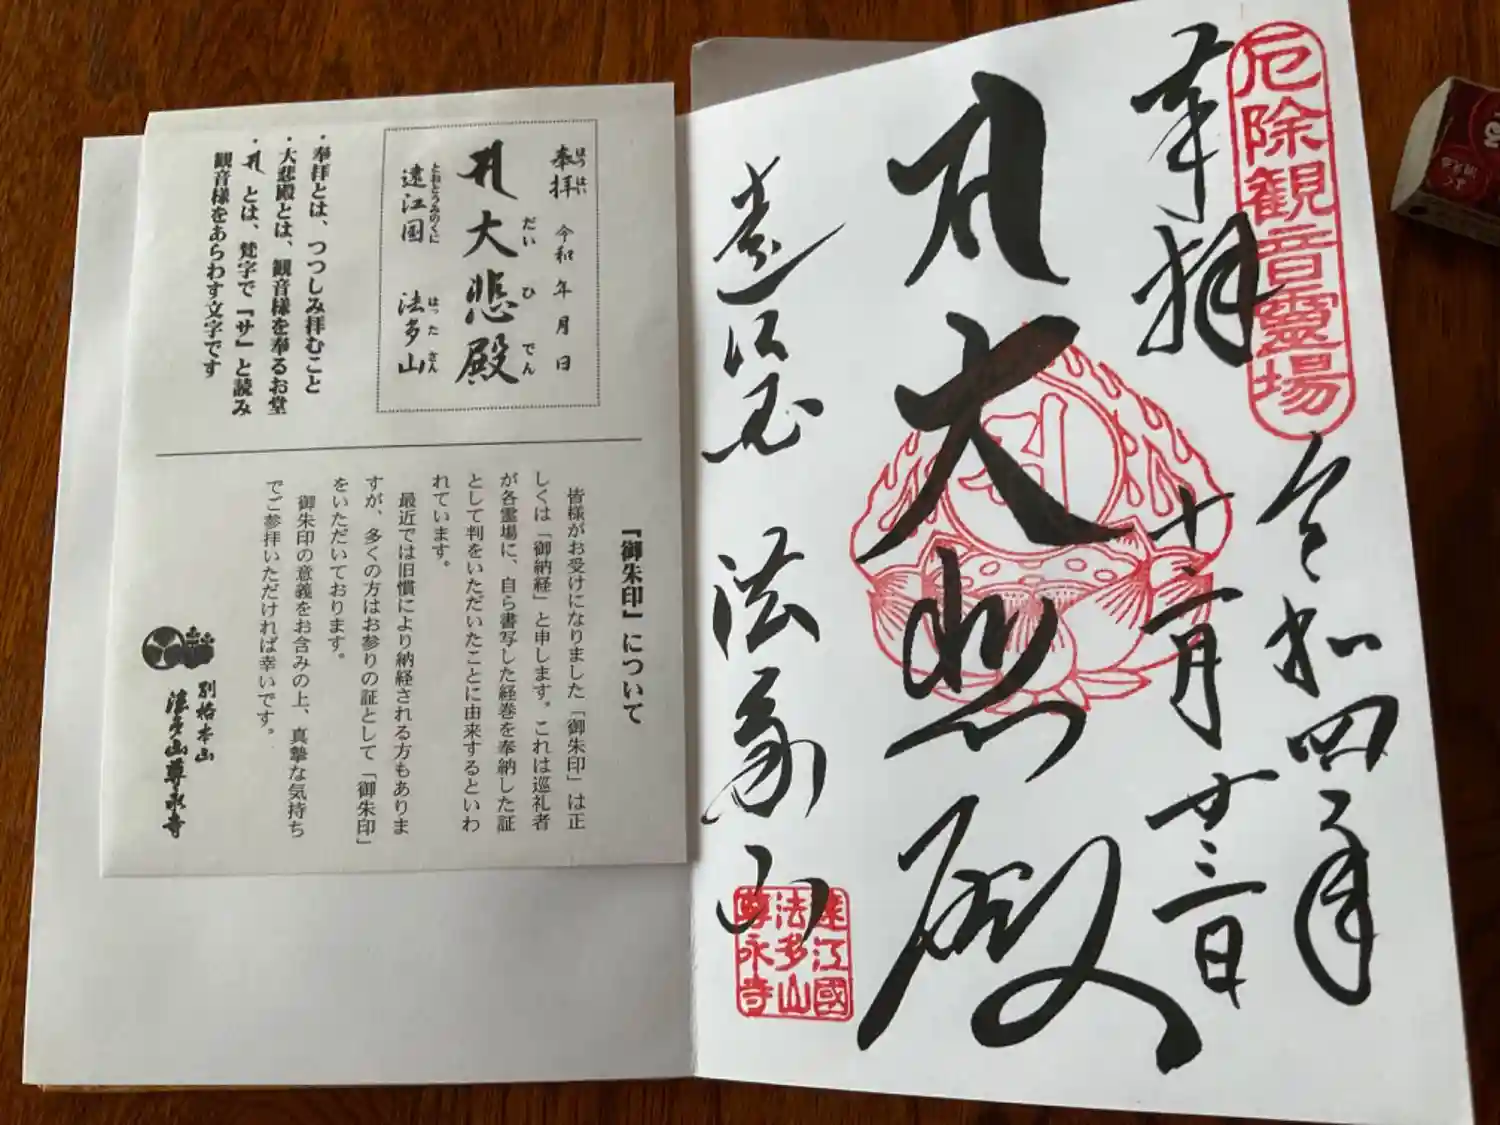 奉拝
はっはい
令和 年 月 日
大悲殿
だいひでん
遠江国 法多山
とおとうみのくに
はったさん
・奉拝とは、つつしみ拝むこと
・大悲殿とは、観音様を奉るお堂
・ とは、梵字で『サ』と読み
観音様をあらわす文字です
『御朱印』について
皆様がお受けになりました「御朱印」は正
しくは「御納経」と申します。これは巡礼者
が各霊場に、自ら書写した経巻を奉納した証
として判をいただいたことに由来するといわ
れています。
最近では旧慣により納経される方もありま
すが、多くの方はお参りの証として「御朱印」
をいただいております。
御朱印の意義をお含みの上、真摯な気持ち
でご参拝いただければ幸いです。
別格本山
法多山尊永寺
厄除観音靈場
奉拝
令和四年
十一月廿三日
大悲殿
遠江国 法多山
遠江國
法多山
尊永寺